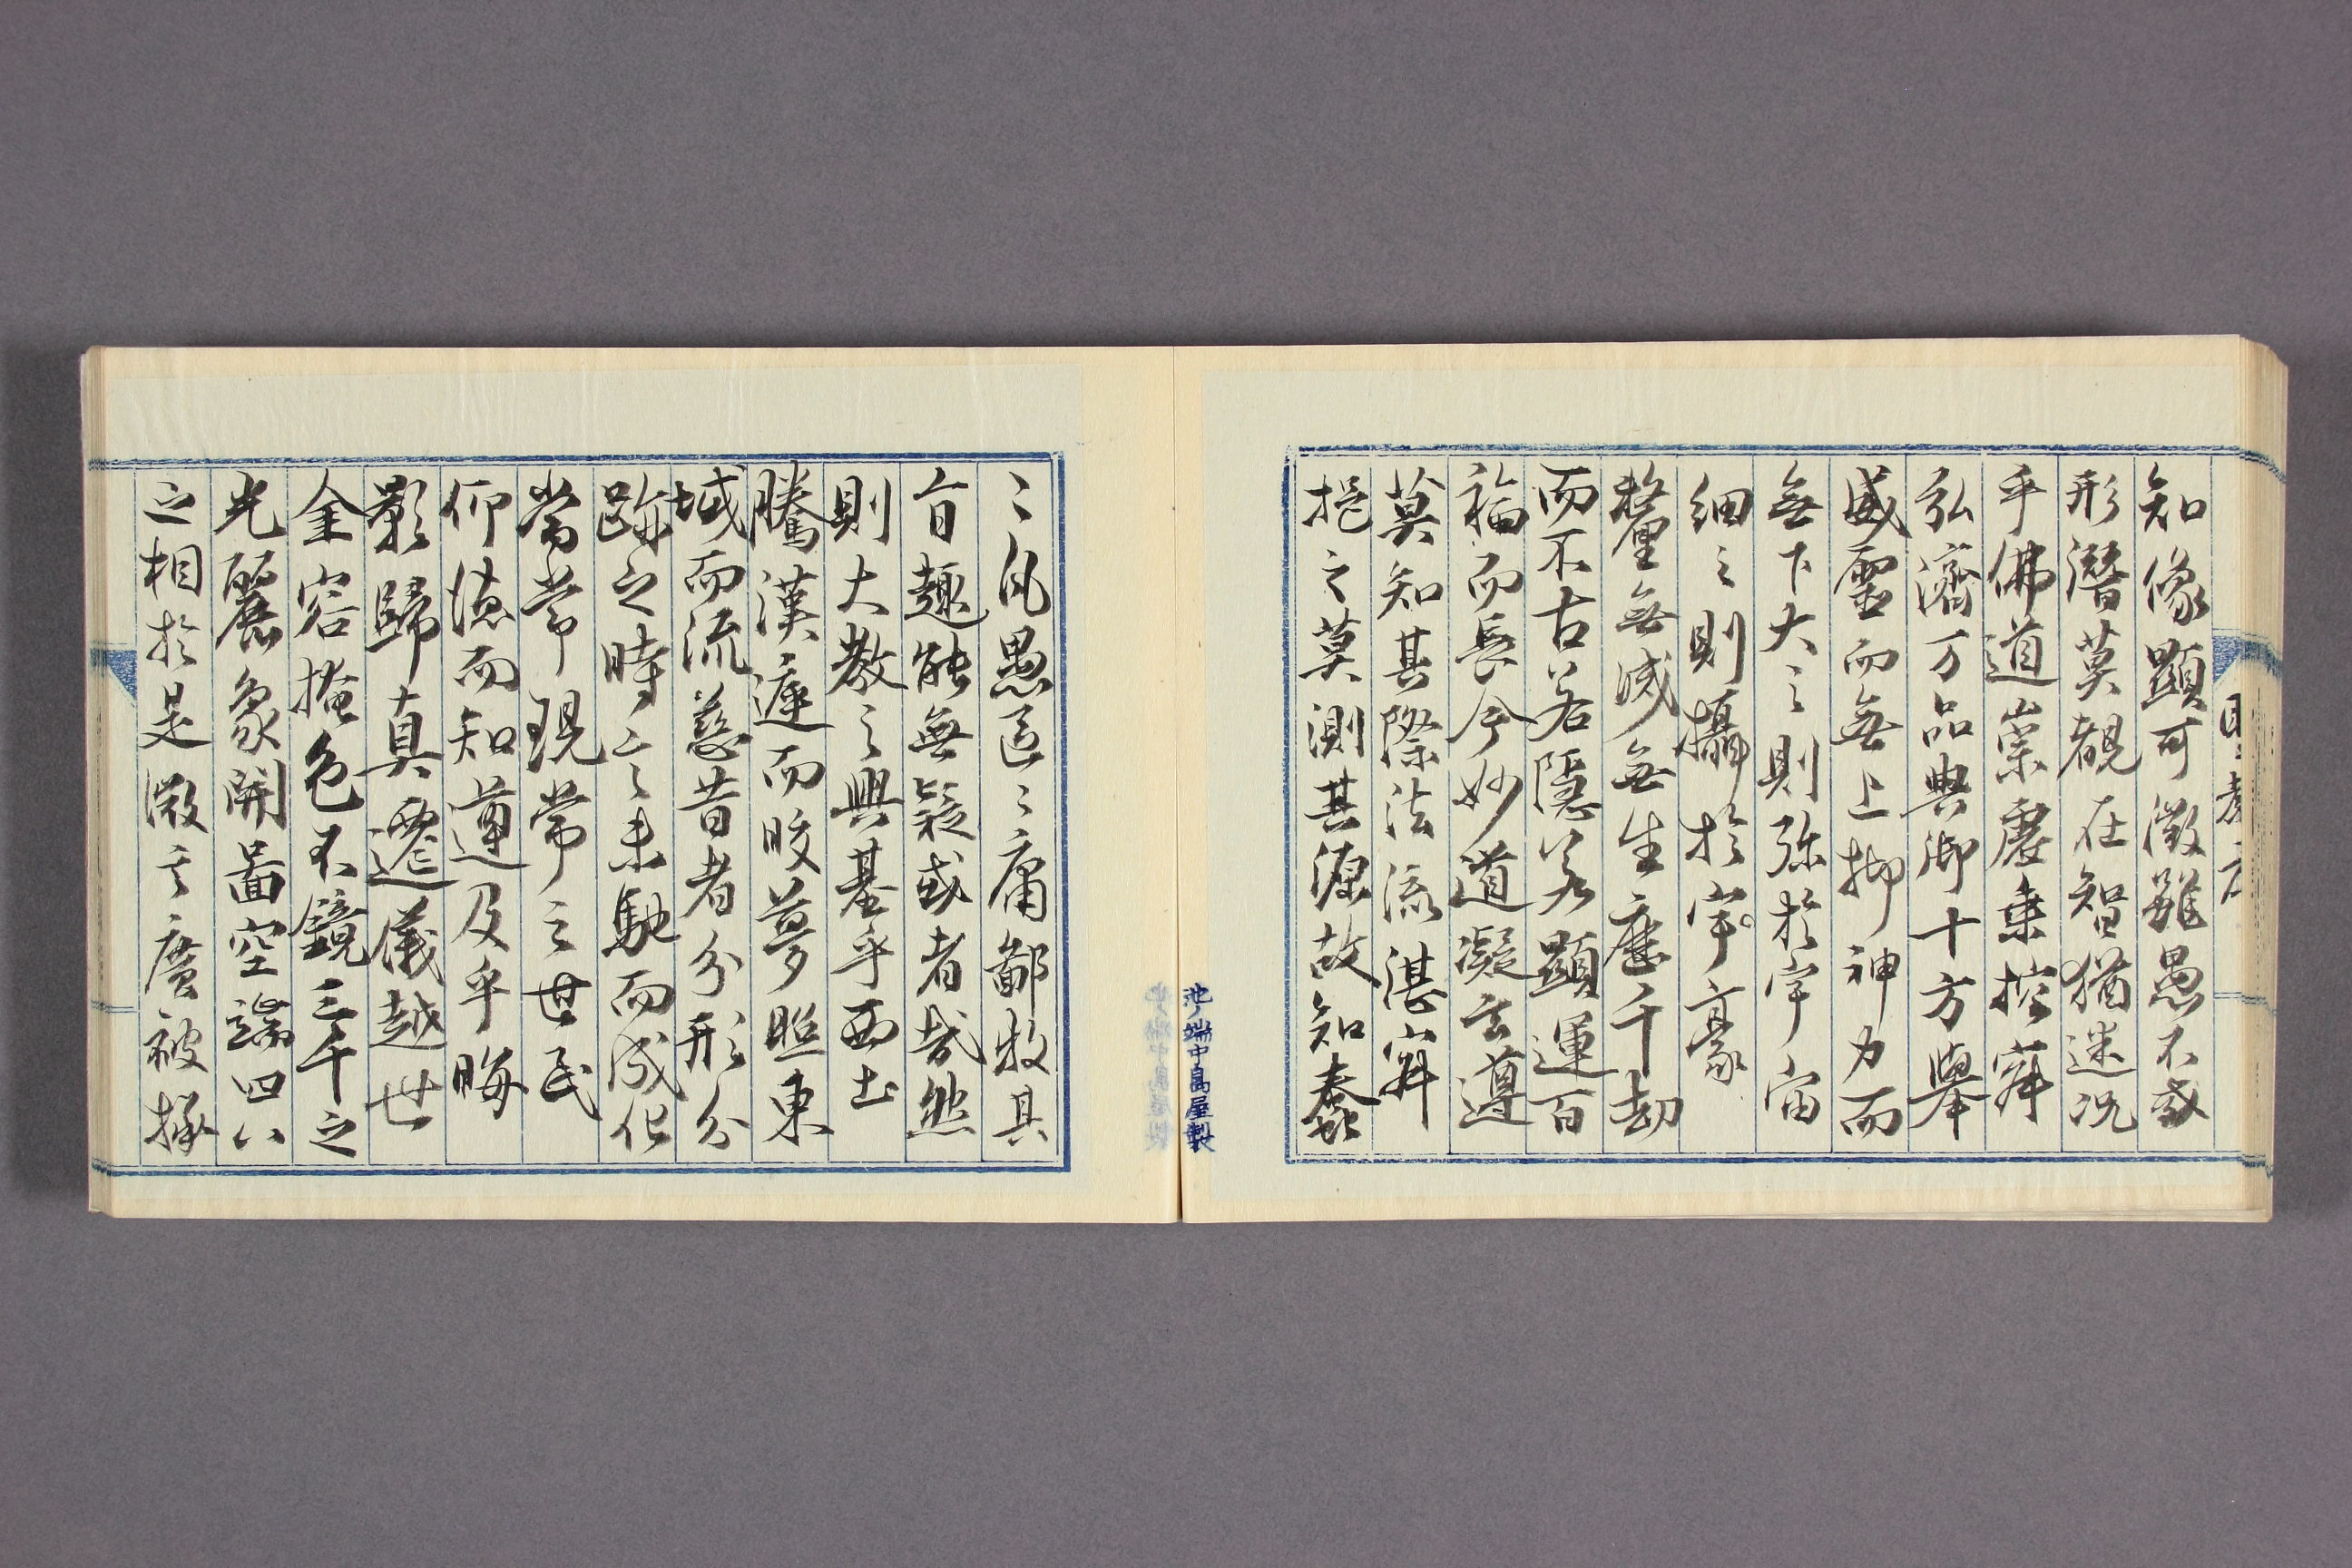 知像顯可徵雖愚不惑
形潛莫覩在智猶迷況
乎佛道崇虛乗控寂
弘濟万品典御十方舉
威靈而無上抑神力而
無下大之則弥於宇宙
細之則攝於宇豪
釐無滅無生歷千劫
而不古若隱若顯運百
福而長今妙道凝玄遵
莫知其際法流湛寂
挹之莫測其源故知蠢
池ノ端中島屋製
〻凡愚區〻庸鄙投其
旨趣能無疑或者哉然
則大教之興基乎西土
騰漢庭而皎夢照東
域而流慈昔者分形分
跡之時言未馳而成化
當常現常之世民
仰德而知遵及乎晦
影歸真遷儀越世
金容掩色不鏡三千之
光麗象開圖空端四八
之相於是微言廣被拯